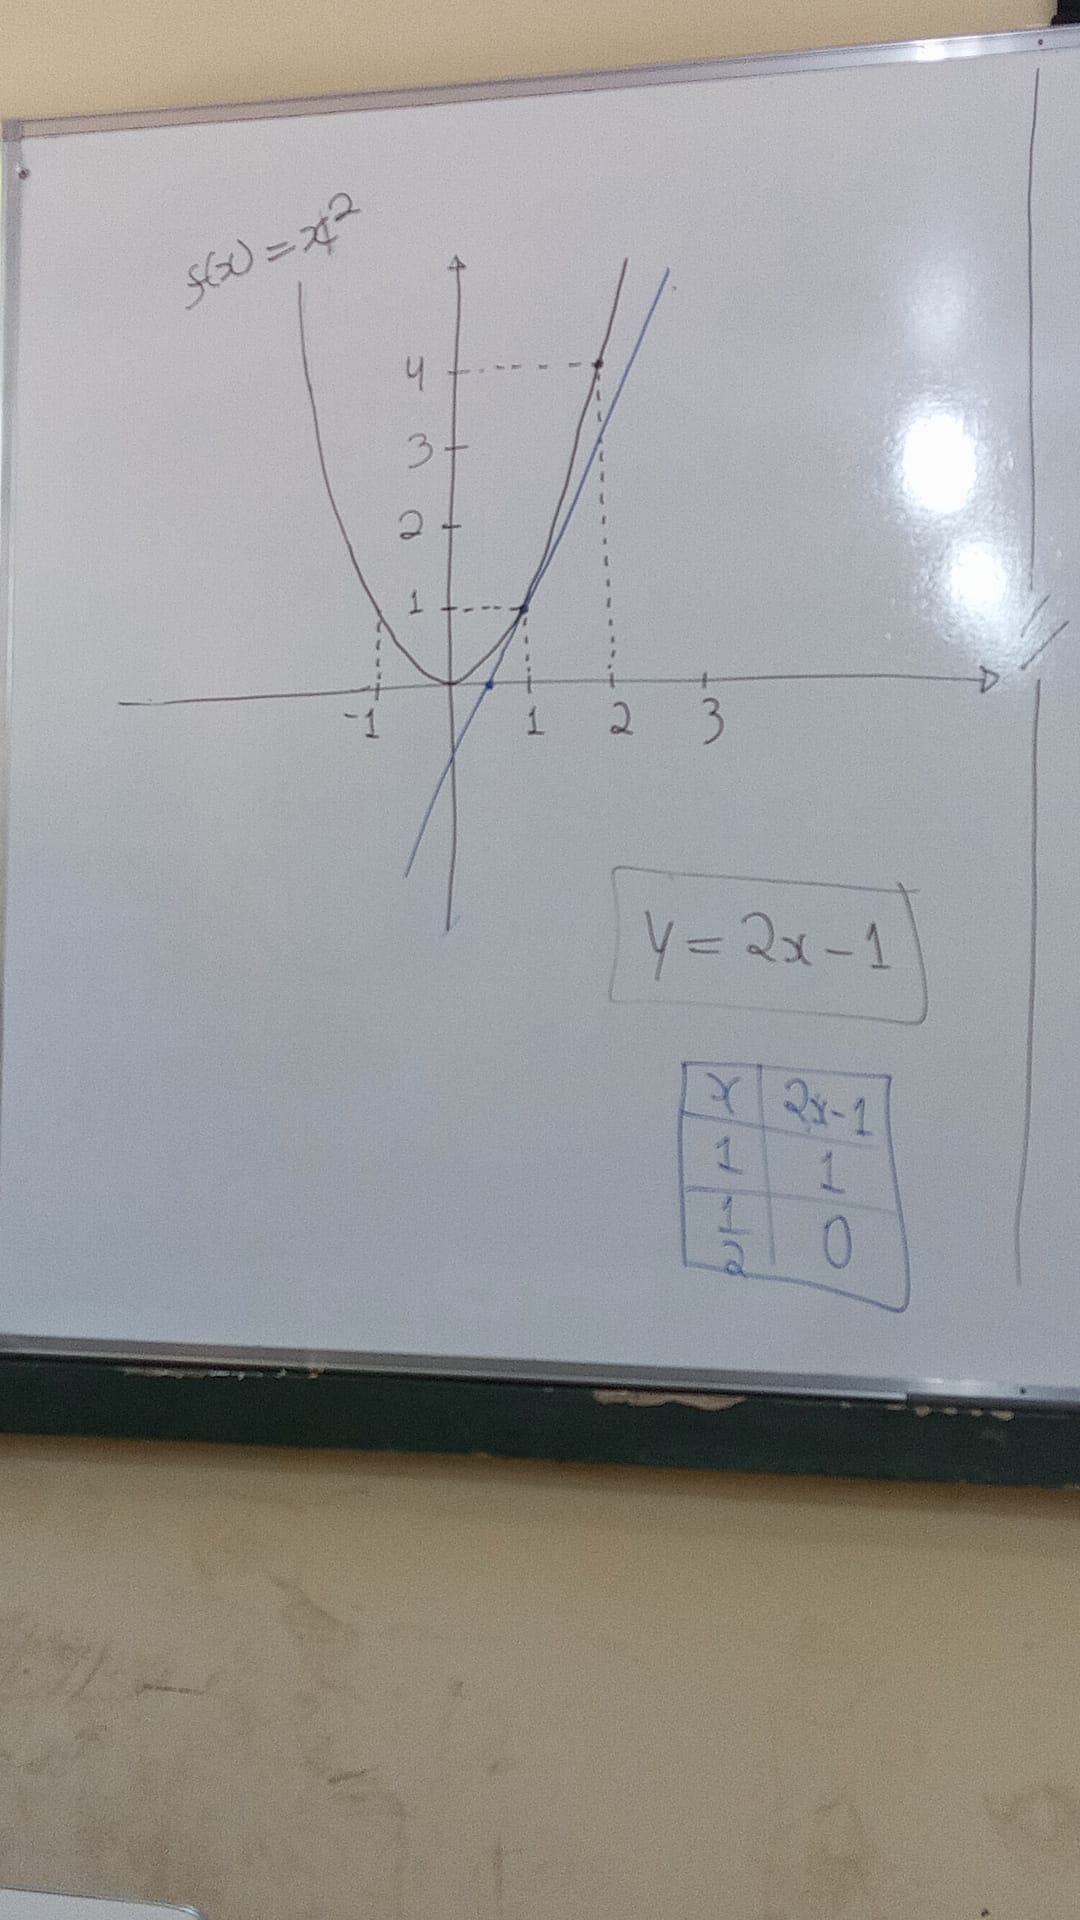 f(x) = x²
4
3
2
1
-1 1 2 3
y = 2x - 1
x 2x-1
1 1
1/2 0